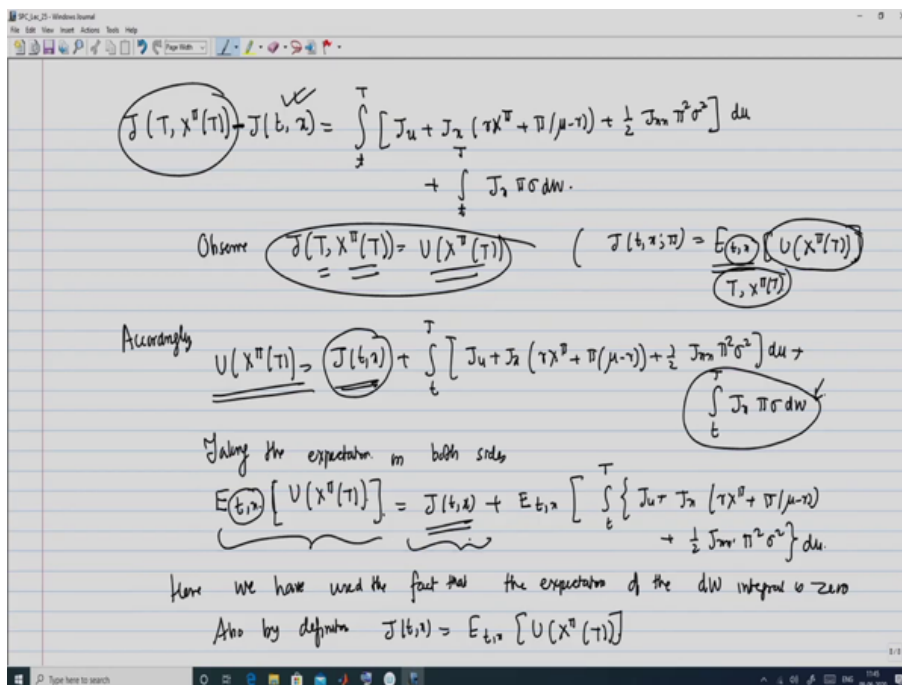 SPC_Lec_25 - Windows Journal
File Edit View Insert Actions Tools Help
Page Width
J(T, X^π(T)) - J(t, x) = ∫_t^T [J_u + J_x (rX^π + π(μ-r)) + ½ J_xx π²σ²] du
+ ∫_t^T J_x πσ dw.
Observe J(T, X^π(T)) = U(X^π(T)) ( J(t, x; π) = E_{t,x} [U(X^π(T))]
T, X^π(T)
Accordingly
U(X^π(T)) = J(t,x) + ∫_t^T [J_u + J_x (rX^π + π(μ-r)) + ½ J_xx π²σ²] du +
∫_t^T J_x πσ dw
Taking the expectation on both sides
E_{t,x} [U(X^π(T))] = J(t,x) + E_{t,x} [∫_t^T {J_u + J_x (rX^π + π(μ-r))
+ ½ J_xx π²σ²} du.
Here we have used the fact that the expectation of the dW integral is zero
Also by definition J(t,x) = E_{t,x} [U(X^π(T))]
Type here to search
ENG
11:45